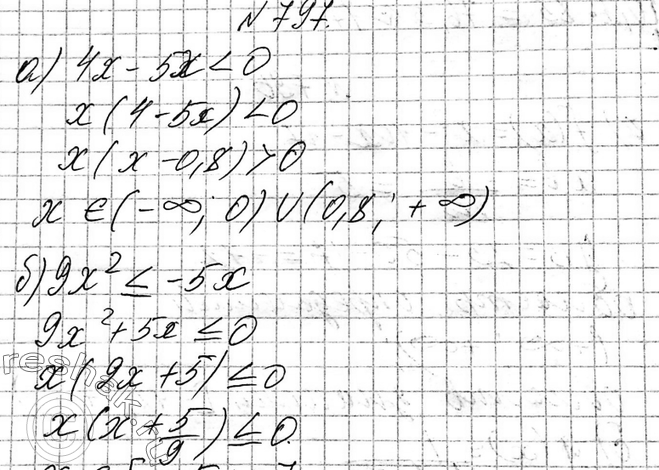 №797.
а) 4x - 5x < 0
x(4-5x) < 0
x(x-0,8) > 0
x ∈ (-∞; 0) ∪ (0,8; +∞)
б) 9x² ≤ -5x
9x² + 5x ≤ 0
x(9x+5) ≤ 0
x(x + 5/9) ≤ 0.
reshak.ru